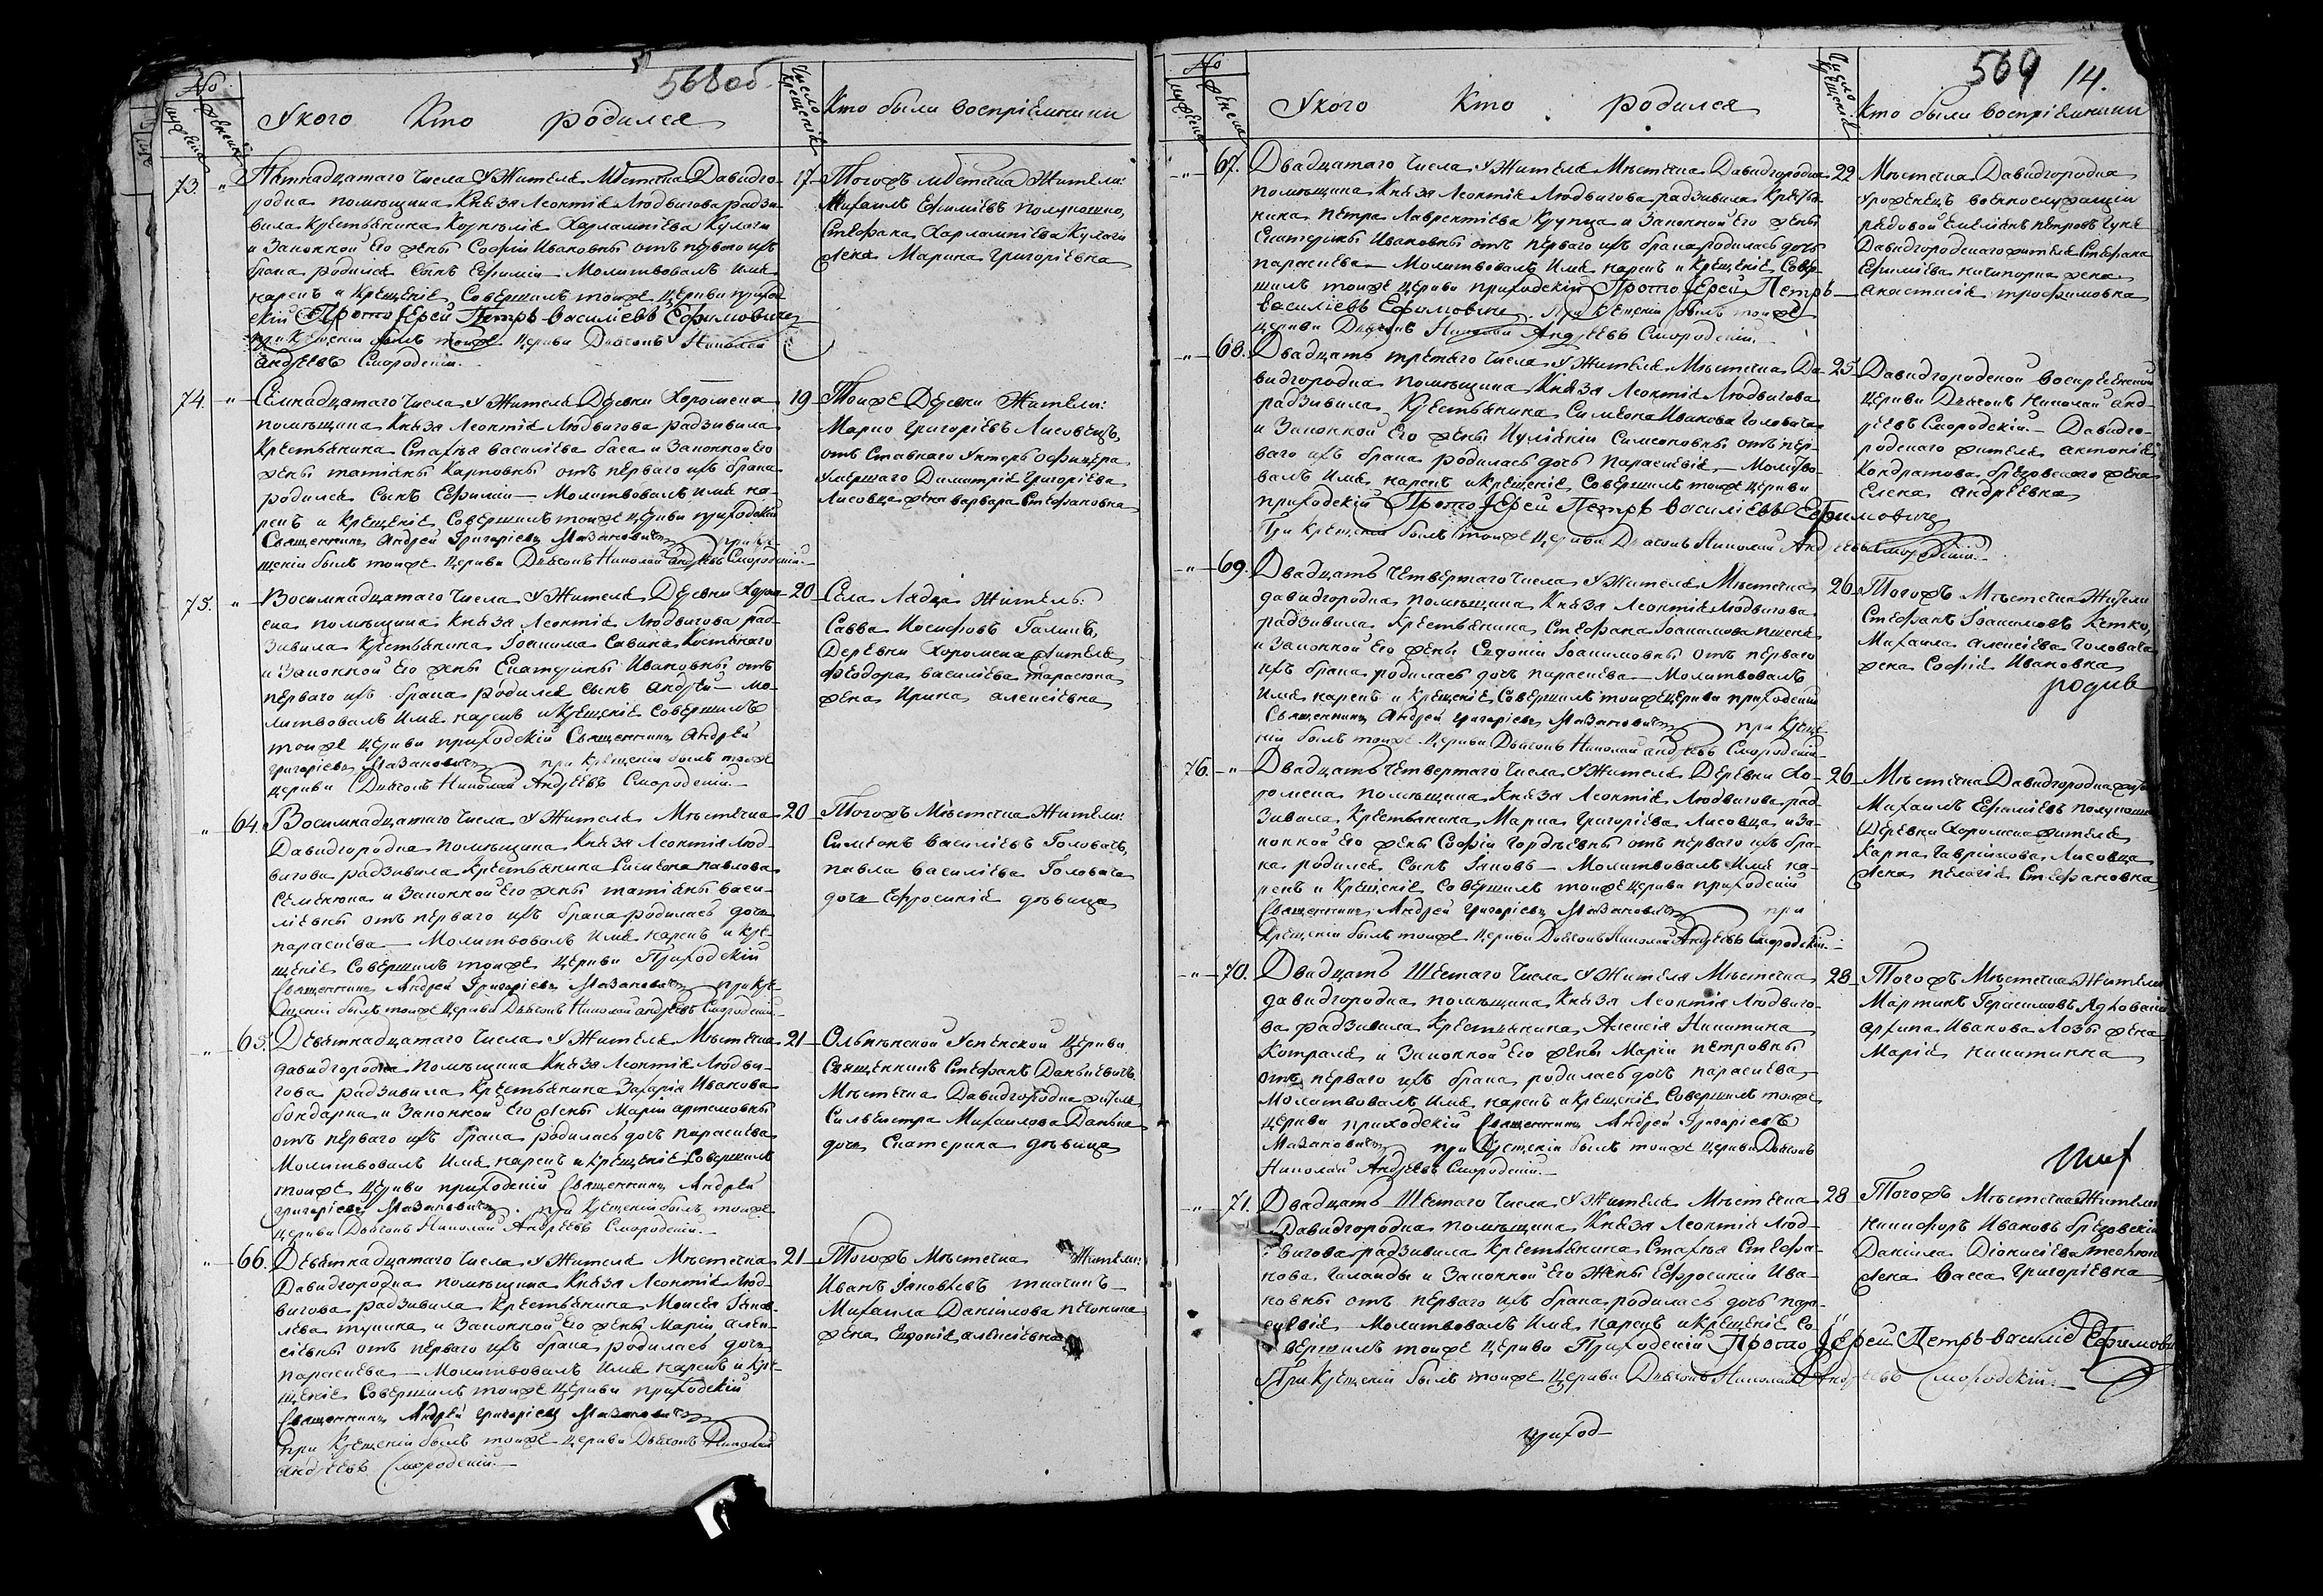 568 об.
№
У кого Кто родился
Число крещенія
Кто были воспріемники
73. „ Пятнадцатаго числа у Жителя Мѣстечка Давидго-
родка помѣщика Князя Леонтія Людвигова радзи-
вила Крестьянина Корнилія Харлампіева Кулаги
и Законной его жены Софіи Ивановны отъ перваго ихъ
брака родился сынъ Ефимій — Молитвовалъ имя
нарекъ и Крещеніе Совершилъ тоиже Церкви приход-
скій Прото Іерей Петръ Василіевъ Ефимовичъ
при Крещеніи былъ тоиже Церкви Дьяконъ Николай
Андреевъ Смородскій.
17 Тогожъ мѣстечка Жители:
Михаилъ Ефиміевъ Полукошко,
Стефана Харлампіева Кулаги
жена Марина Григоріевна
74. „ Семнадцатаго числа у Жителя Деревни Хоромска
помѣщика Князя Леонтія Людвигова радзивила
Крестьянина Стахѣя Василіева баса и Законной его
жены татіяны Карповны отъ перваго ихъ брака
родился сынъ Ефимій — Молитвовалъ имя на-
рекъ и Крещеніе Совершилъ тоиже Церкви приходскій
Священникъ Андрей Григоріевъ Мазановичъ при кре-
щеніи былъ тоиже Церкви Дьяконъ Николай Андреевъ Смородскій.
19 Тоиже Деревни Жители:
Марко Григоріевъ Лисовецъ,
отъ Ставнаго Унтеръ Офицера
умершаго Димитрія Григоріева
Лисовца жена варвара Стефановна
75. „ Восимнадцатаго числа у Жителя Деревни Хором-
ска помѣщика Князя Леонтія Людвигова рад-
зивила Крестьянина Іоакима Савина
и Законной его жены Екатерины Ивановны отъ
перваго ихъ брака родился сынъ Андрей — мо-
литвовалъ имя нарекъ и Крещеніе совершилъ
тоиже церкви приходскій Священникъ Андрей
григоріевъ Мазановичъ при крещеніи былъ тоиже
церкви Дьяконъ Николай Андреевъ Смородскій.
20 Села Лядца Житель:
Савва Иосифовъ Галинъ,
Деревни Хоромска жителя
Феодора василіева тарасюка
жена Ирина алексіевна
„ 64. Восимнадцатаго числа у Жителя Мѣстечка
Давидгородка помѣщика Князя Леонтія Люд-
вигова радзивила Крестьянина Симеона павлова
Семенюка и Законной его жены татіяны васи-
ліевны отъ перваго ихъ брака родилась дочь
параскева — Молитвовалъ имя нарекъ и кре-
щеніе совершилъ тоиже церкви Приходскій
Священникъ Андрей Григоріевъ Мазановичъ при кре-
щеніи былъ тоиже Церкви Дьяконъ Николай андреевъ Смородскій.
20 Тогожъ Мѣстечка Жители:
Симеонъ василіевъ Головачъ,
павла василіева Головача
дочь Ефросинія дѣвица
„ 65. Девятнадцатаго числа у Жителя Мѣстечка
давидгородка помѣщика Князя Леонтія Людви-
гова радзивила Крестьянина Захарія Иванова
бондарика и Законной его жены Маріи артемовны
отъ перваго ихъ брака родилась дочь параскева
Молитвовалъ имя нарекъ и крещеніе Совершилъ
тоиже церкви приходскій Священникъ Андрей
григоріевъ Мазановичъ. при Крещеніи былъ тоиже
церкви Дьяконъ Николай Андреевъ Смородскій.
21 Успенской Церкви
Священникъ Стефанъ
Мѣстечка Давидгородка житель
Сильвестра Михаилова
дочь Екатерина дѣвица
„ 66. Девятнадцатаго числа у Жителя Мѣстечка
Давидгородка помѣщика Князя Леонтія Люд-
вигова радзивила Крестьянина Моисея Іаков-
лева тупика и Законной его жены Маріи алек-
сіевны отъ перваго ихъ брака родилась дочь
параскева — Молитвовалъ имя нарекъ и кре-
щеніе Совершилъ тоиже церкви приходскій
Священникъ Андрей григоріевъ Мазановичъ
при Крещеніи былъ тоиже церкви Дьяконъ Николай
Андреевъ Смородскій.
21 Тогожъ Мѣстечка Жители:
Иванъ Іаковлевъ ткачикъ
Михаила Даніилова
жена Евдокія алексіевна
569 14.
№
У кого Кто родился
Число крещенія
Кто были воспріемники
„ 67. Двадцатаго числа у Жителя Мѣстечка Давидгородка
помѣщика Князя Леонтія Людвигова радзивила Крестья-
нина петра Лаврентіева Крупца и Законной его жены
Екатерины Ивановны отъ перваго ихъ брака родилась дочь
параскева — Молитвовалъ имя нарекъ и Крещеніе Совер-
шилъ тоиже церкви приходскій Прото Іерей Петръ
Василіевъ Ефимовичъ. При крещеніи былъ тоиже
церкви Дьяконъ Николай Андреевъ Смородскій.
22 Мѣстечка Давидгородка
урожденецъ военнослужащій
рядовой Емеліанъ петровъ
Давидгородскаго жителя Стефана
Ефиміева ничипорка жена
анастасія трофимовна
„ 68. Двадцать третяго числа у Жителя Мѣстечка Да-
видгородка помѣщика Князя Леонтія Людвигова
радзивила Крестьянина Симеона Иванова Головача
и Законной его жены Іуліаніи Симеоновны отъ пер-
ваго ихъ брака родилась дочь Параскевія — Молитво-
валъ имя нарекъ и крещеніе Совершилъ тоиже церкви
приходскій Прото Іерей Петръ Василіевъ Ефимовичъ
При Крещеніи былъ тоиже Церкви Дьяконъ Николай Андреевъ Смородскій.
25 Давидгородской воскресенской
церкви Дьяконъ Николай анд-
реевъ Смородскій — Давидго-
родскаго жителя антонія
Кондратова брезовскаго жена
Елена андреевна
„ 69. Двадцать четвертаго числа у Жителя Мѣстечка
давидгородка помѣщика Князя Леонтія Людвигова
радзивила Крестьянина Стефана Іоакимова
и Законной его жены Іоакимовны отъ перваго
ихъ брака родилась дочь параскева — Молитвовалъ
имя нарекъ и Крещеніе Совершилъ тоиже церкви приходскій
Священникъ Андрей григоріевъ Мазановичъ при креще-
ніи былъ тоиже Церкви Дьяконъ Николай андреевъ Смородскій
26 Тогожъ Мѣстечка Жители
Стефанъ Іоакимовъ Кетко,
Михаила алексіева Головача
жена Софія Ивановна
76. „ Двадцать четвертаго числа у Жителя Деревни Хо-
ромска помѣщика Князя Леонтія Людвигова рад-
зивила Крестьянина Марка Григоріева Лисовца и за-
конной его жены Софіи Гордѣевны отъ перваго ихъ бра-
ка родился сынъ Іаковъ — Молитвовалъ имя на-
рекъ и Крещеніе совершилъ тоиже церкви приходскій
Священникъ Андрей григоріевъ Мазановичъ при
Крещеніи былъ тоиже Церкви Дьяконъ Николай Андреевъ Смородскій.
26 Мѣстечка Давидгородка житель
Михаилъ Ефиміевъ полукошко
Деревни Хоромска жителя
Карпа Гавриилова Лисовца
жена пелагія Стефановна
„ 70. Двадцать Шестаго числа у Жителя Мѣстечка
давидгородка помѣщика Князя Леонтія Людвиго-
ва радзивила Крестьянина Алексія Никитина
Котраля и Законной его жены Маріи петровны
отъ перваго ихъ брака родилась дочь параскева
Молитвовалъ имя нарекъ и крещеніе Совершилъ тоиже
церкви приходскій Священникъ Андрей Григоріевъ
Мазановичъ при Крещеніи былъ тоиже церкви Дьяконъ
Николай Андреевъ Смородскій.
28 Тогожъ Мѣстечка Жители
Мартинъ Герасимовъ
архипа Иванова Лозы жена
Марія никитична
„ 71. Двадцать Шестаго числа у Жителя Мѣстечка
Давидгородка помѣщика Князя Леонтія Люд-
вигова радзивила Крестьянина Стахѣя Стефа-
нова Галанды и Законной его Жены Ефросиніи Ива-
новны отъ перваго ихъ брака родилась дочь пара-
скевія — Молитвовалъ имя нарекъ и крещеніе Со-
вершилъ тоиже церкви Приходскій Прото Іерей Петръ Василіевъ Ефимовичъ
При Крещеніи былъ тоиже Церкви Дьяконъ Николай Андреевъ Смородскій.
28 Тогожъ Мѣстечка Жители
никифоръ Ивановъ брезовскій
Даніила Діонисіева
жена Васса Григоріевна
приход-